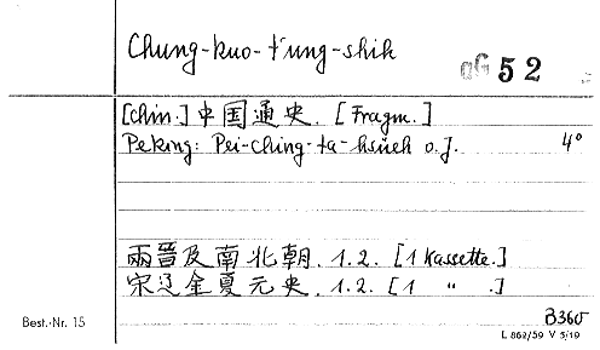 Chung-kuo-t'ung-shih
aG 52
[Chin.] 中国通史. [Fragm.]
Peking: Pei-ching-ta-hsüeh o.J. 4°
兩晉及南北朝. 1.2. [1 Kassette.]
宋辽金夏元史. 1.2. [1 " .]
B360
Best.-Nr. 15
L 862/59 V 5/19